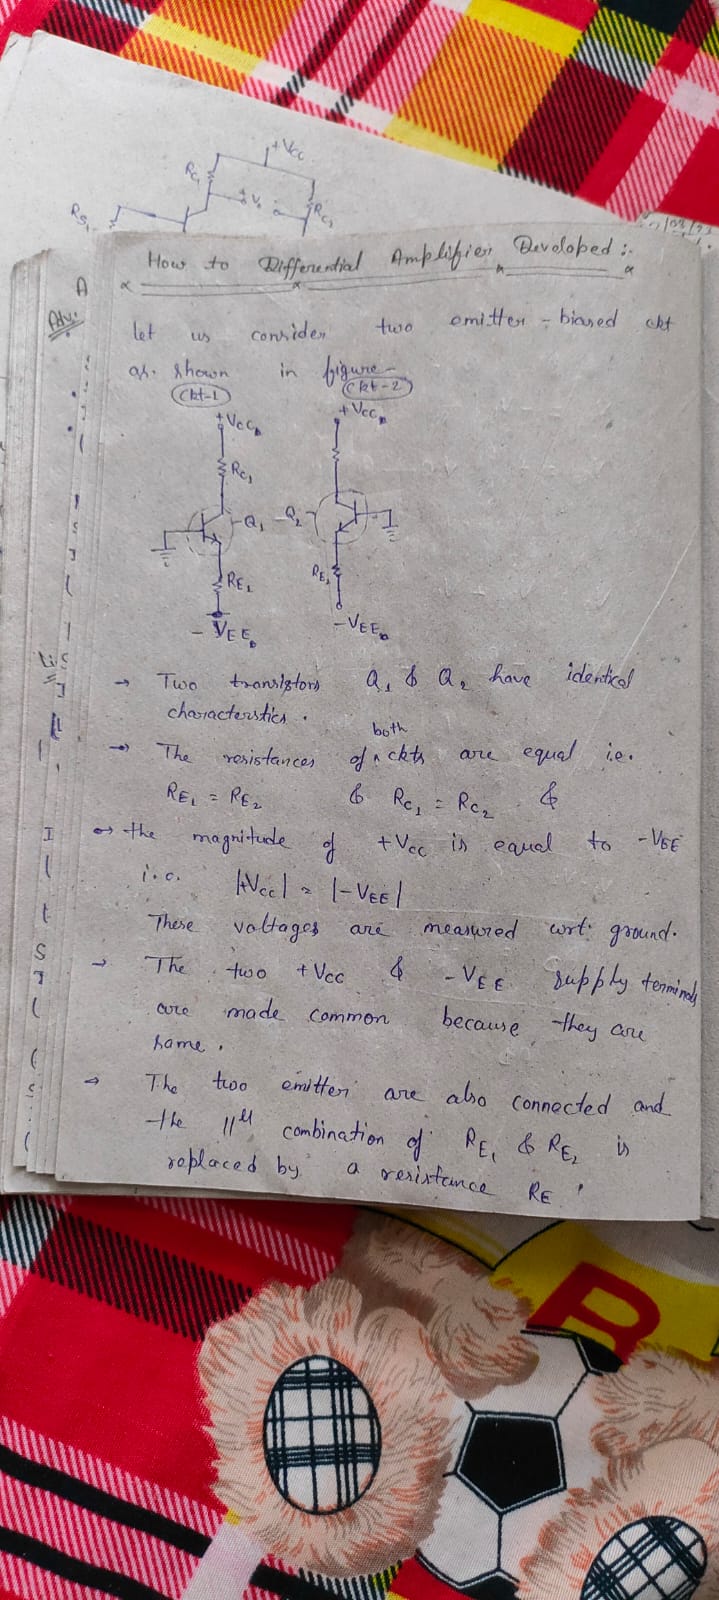 +Vcc
Rc₁
+ Vo -
Rc₂
Rs₁
How to Differential Amplifier Developed :-
A
Adv:
let us consider two emitter - biased ckt
as shown in figure -
Ckt-1
Ckt-2
+Vcc
+Vcc
Rc₁
Q₁
Q₂
RE₁
RE₂
- VEE
-VEE
→ Two transistors Q₁ & Q₂ have identical
characterstics.
both
→ The resistances of ^ ckts are equal i.e.
RE₁ = RE₂ & Rc₁ = Rc₂ &
→ the magnitude of +Vcc is equal to -VEE
i.e. |+Vcc| = |-VEE|
These voltages are measured wrt. ground.
→ The two +Vcc & -VEE supply terminals
are made common because they are
same.
→ The two emitter are also connected and
the ||el combination of RE₁ & RE₂ is
replaced by a resistance RE.
B